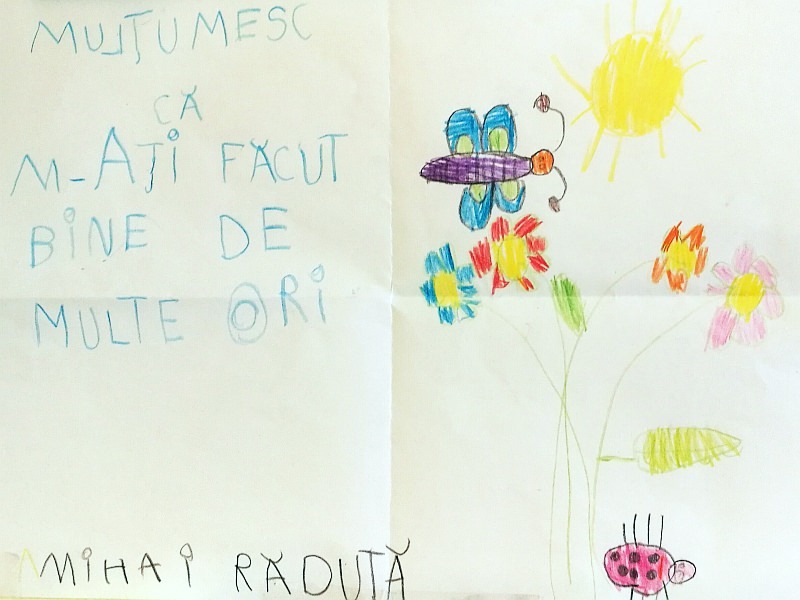 MULȚUMESC
CĂ
M-AȚI FĂCUT
BINE DE
MULTE ORI
MIHAI RĂDUȚĂ